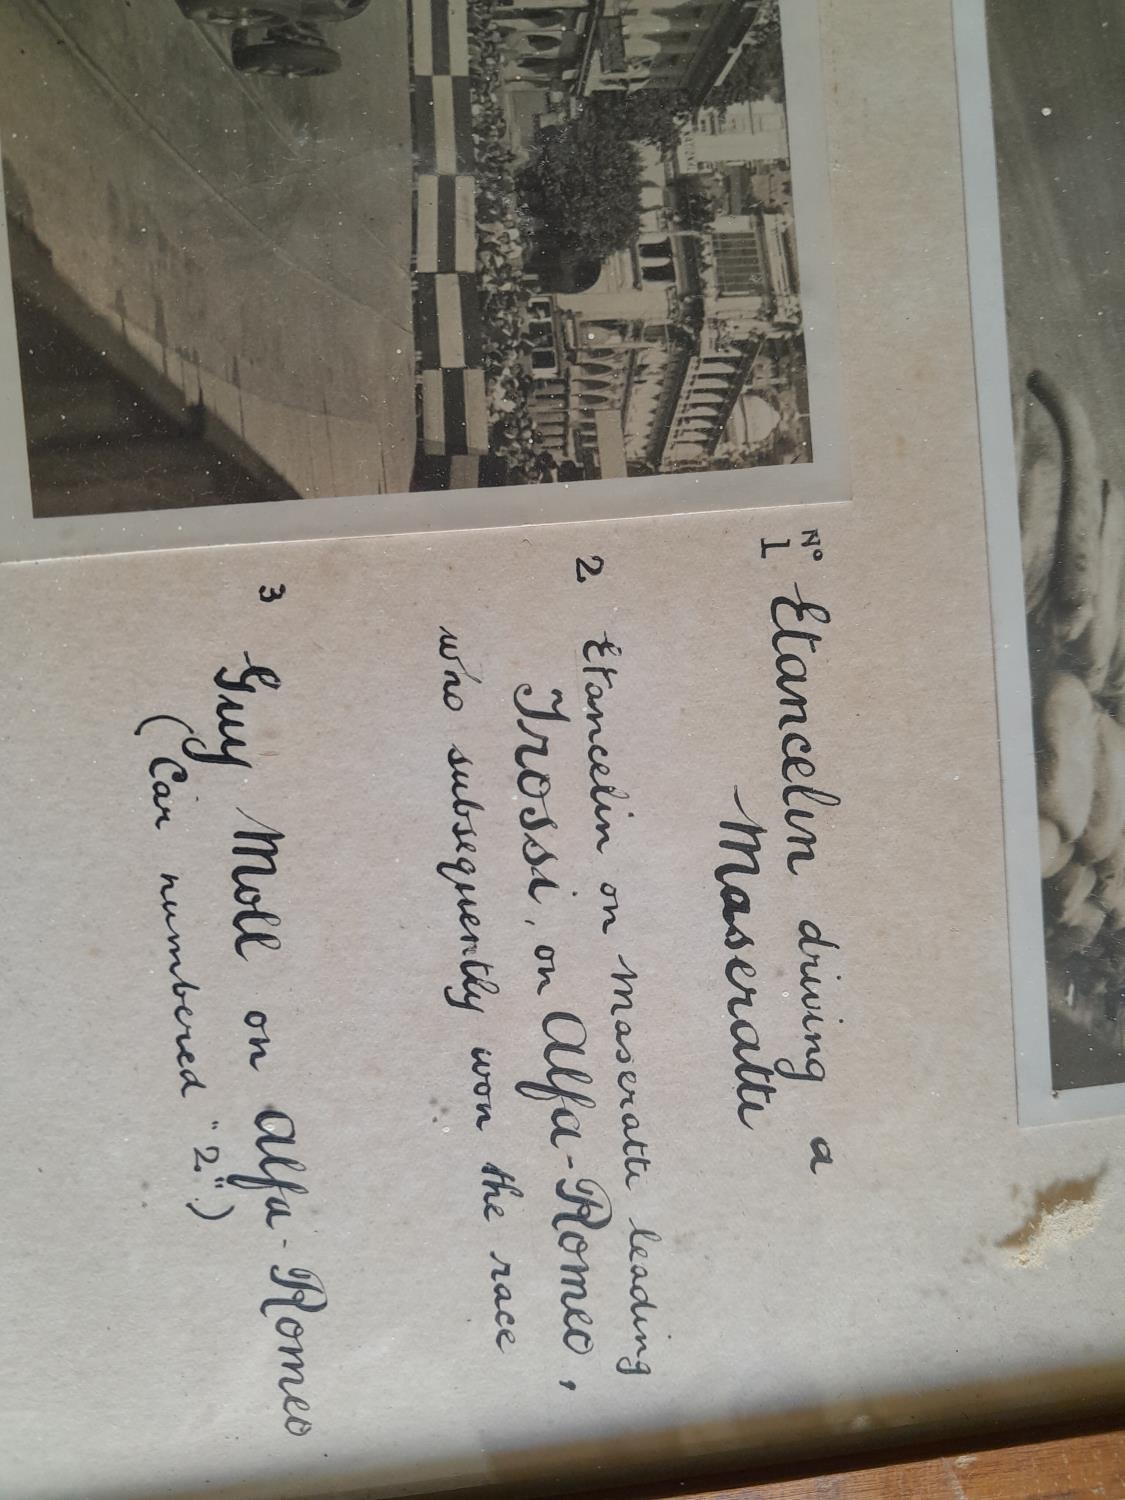 Nº 1 Etancelin driving a
Maseratti
2 Etancelin on Maseratti leading
Trossi, on Alfa-Romeo,
who subsequently won the race
3 Guy Moll on Alfa-Romeo
(Car numbered "2.")